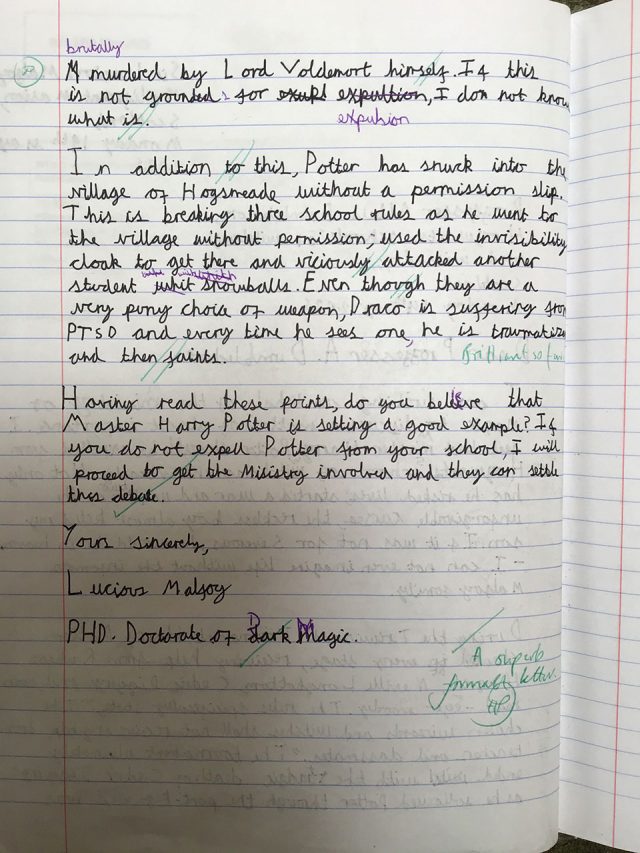 brutally
Murdered by Lord Voldemort himself. If this
is not grounds for expultion, I don not know
expulsion
what is.
In addition to this, Potter has snuck into the
village of Hogsmeade without a permission slip.
This is breaking three school rules as he went to
the village without permission, used the invisibility
cloak to get there and viciously attacked another
student whit snowballs. Even though they are a
very puny choice of weapon, Draco is suffering from
PTSD and every time he sees one, he is traumatize
and then faints.
Brilliant so far
Having read these points, do you believe that
Master Harry Potter is setting a good example? If
you do not expell Potter from your school, I will
proceed to get the Misistry involved and they can settle
thes debate.
Yours sincerely,
Lucious Malfoy
PHD. Doctorate of Dark Magic.
A superb
formal letter.